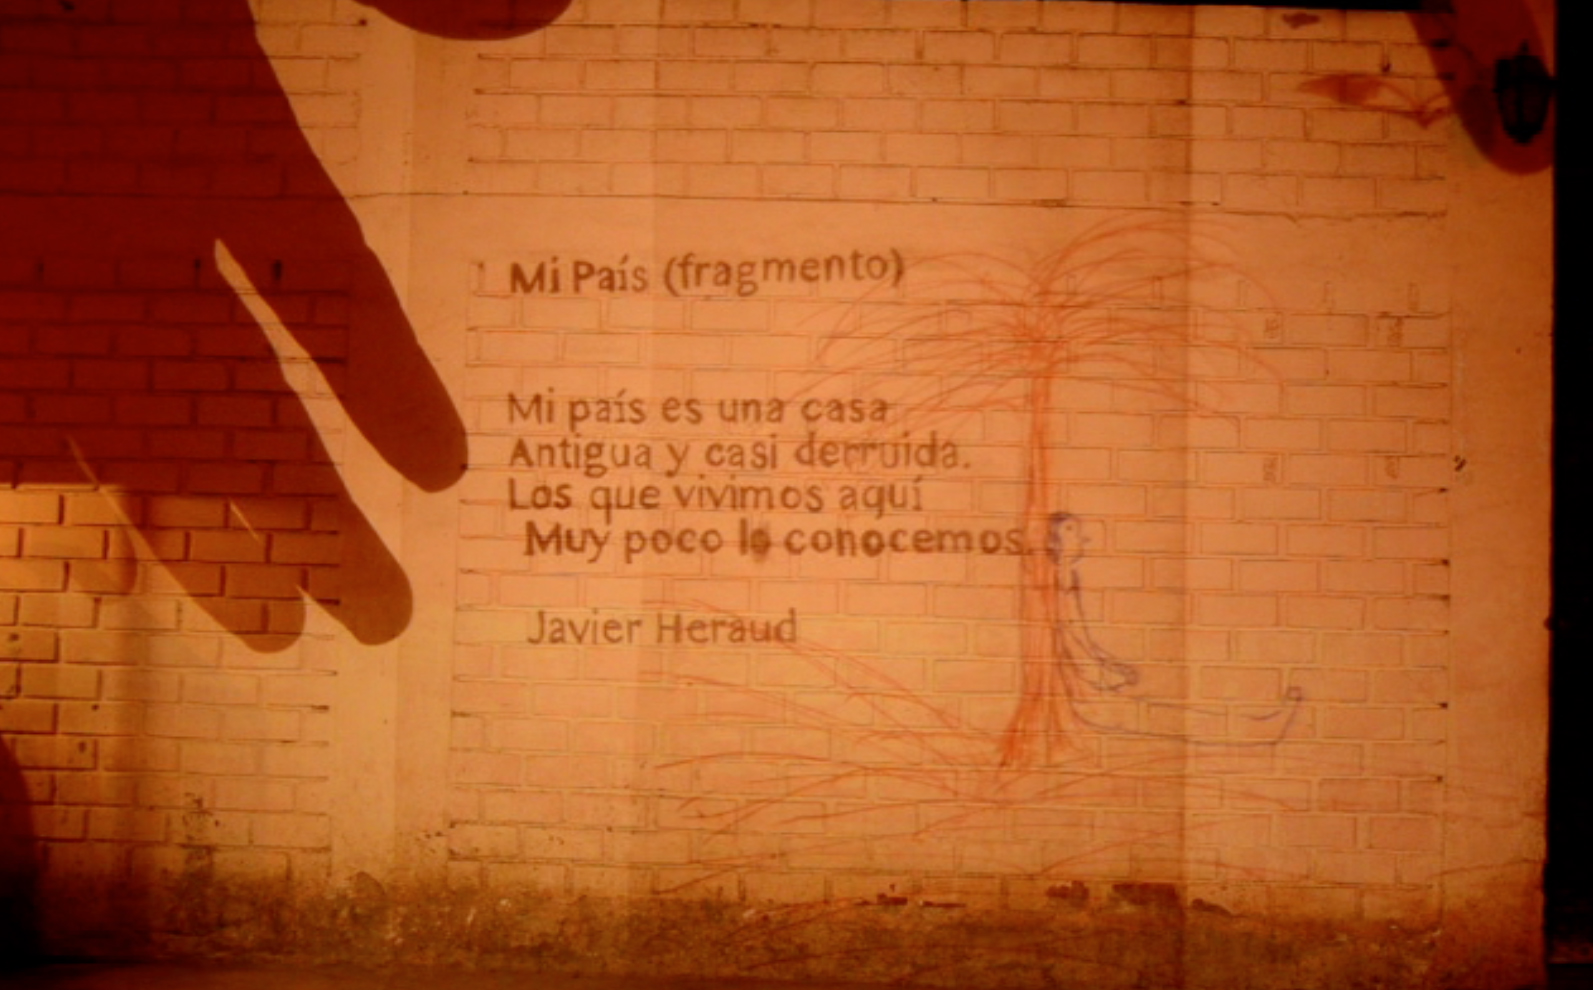 Mi País (fragmento)
Mi país es una casa
Antigua y casi derruida.
Los que vivimos aquí
Muy poco lo conocemos.
Javier Heraud